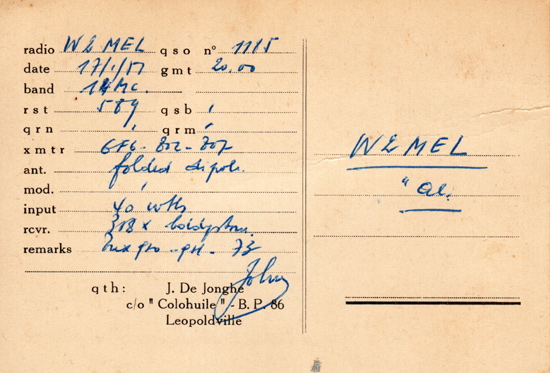 radio W2MEL qso n° 1115
date 17/1/51 gmt 20.00
band 14 Mc.
rst 589 qsb /
qrn / qrm /
xmtr 6F6 - 802 - 807
ant. folded dipole.
mod. /
input 40 wtts
rcvr.
remarks Tnx qso - qsl - 73
John
qth: J. De Jonghe
c/o " Colohuile " - B. P. 86
Leopoldville
W2MEL
" Al.